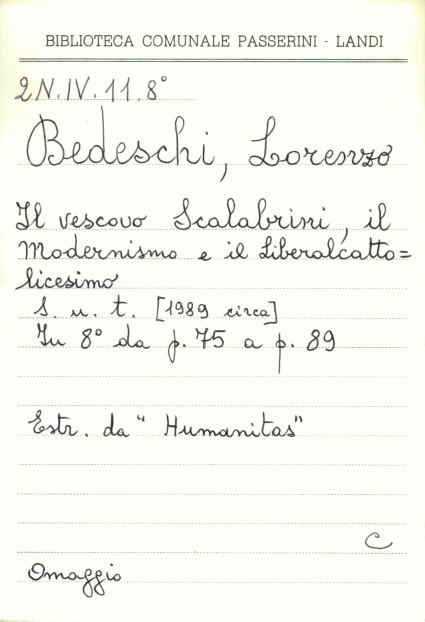 BIBLIOTECA COMUNALE PASSERINI - LANDI
2N.IV.11.8°
Bedeschi, Lorenzo
Il vescovo Scalabrini, il
Modernismo e il Liberalcatto=
licesimo
S. n. t. [1989 circa]
In 8° da p. 75 a p. 89
Estr. da "Humanitas"
C
Omaggio